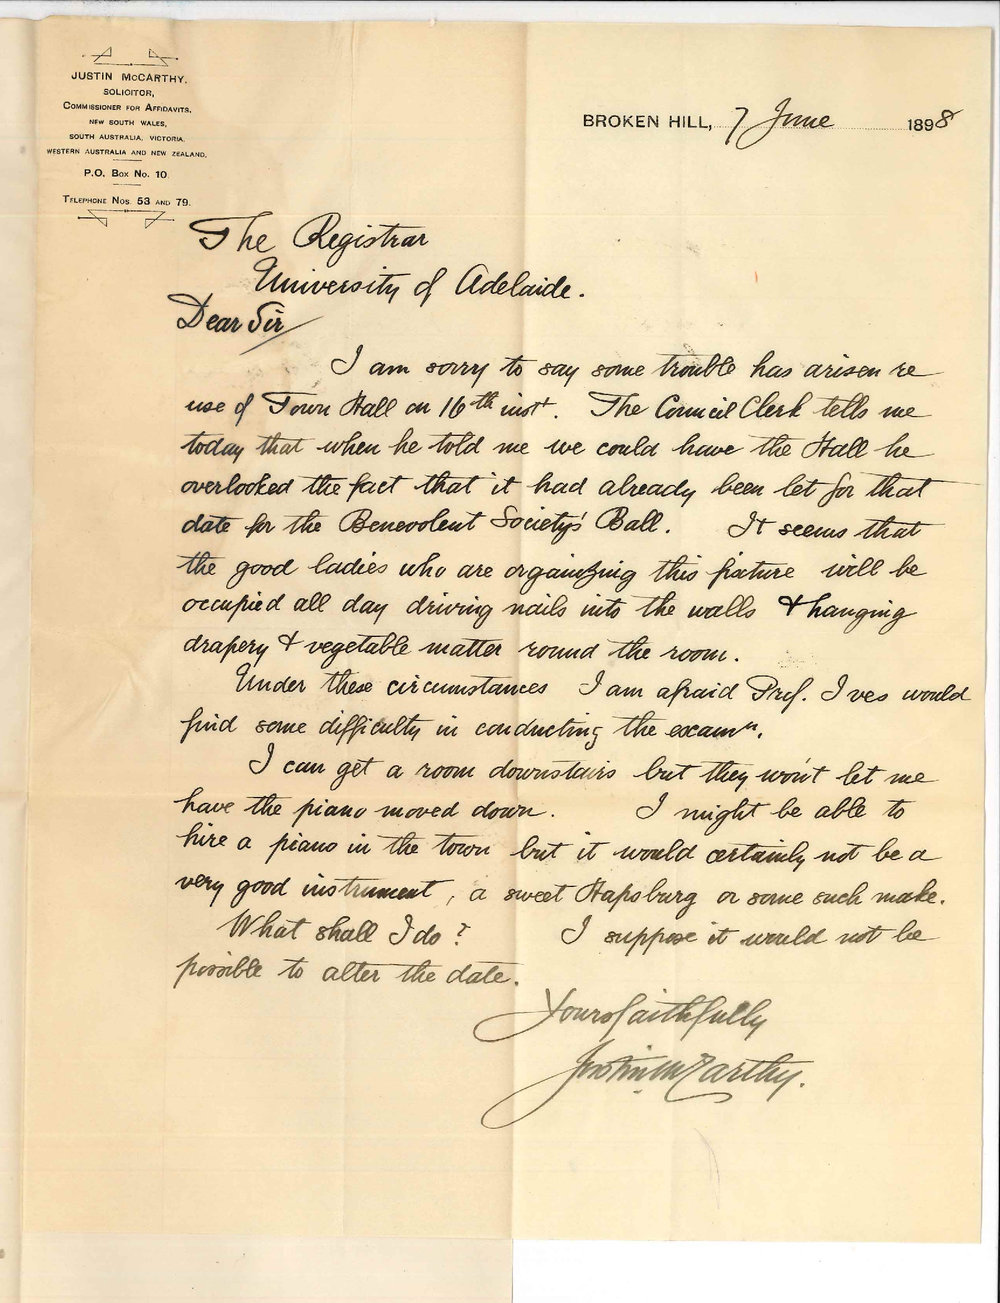 JUSTIN McCARTHY,
SOLICITOR,
COMMISSIONER FOR AFFIDAVITS,
NEW SOUTH WALES,
SOUTH AUSTRALIA, VICTORIA,
WESTERN AUSTRALIA AND NEW ZEALAND,
P.O. Box No. 10.
TELEPHONE NOS. 53 AND 79.
BROKEN HILL, 7 June 1898
The Registrar
University of Adelaide.
Dear Sir
I am sorry to say some trouble has arisen re
use of Town Hall on 16th inst. The Council Clerk tells me
today that when he told me we could have the Hall he
overlooked the fact that it had already been let for that
date for the Benevolent Society's Ball. It seems that
the good ladies who are organizing this fixture will be
occupied all day driving nails into the walls & hanging
drapery & vegetable matter round the room.
Under these circumstances I am afraid Prof. Ives would
find some difficulty in conducting the examn.
I can get a room downstairs but they won't let me
have the piano moved down. I might be able to
hire a piano in the town but it would certainly not be a
very good instrument, a sweet Hapsburg or some such make.
What shall I do? I suppose it would not be
possible to alter the date.
Yours faithfully
Justin McCarthy.